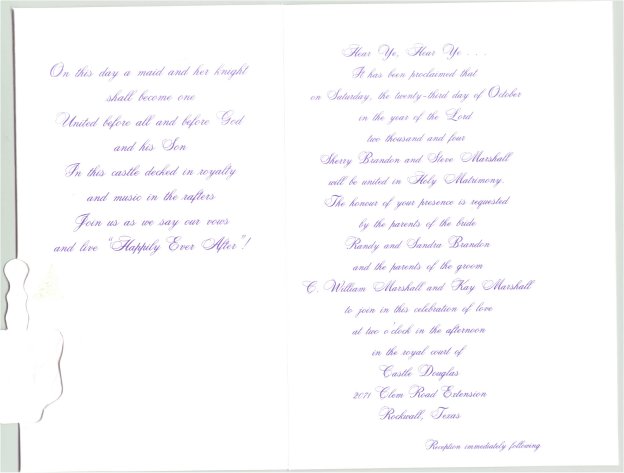 On this day a maid and her knight
shall become one
United before all and before God
and his Son
In this castle decked in royalty
and music in the rafters
Join us as we say our vows
and live "Happily Ever After"!
Hear Ye, Hear Ye . . .
It has been proclaimed that,
on Saturday, the twenty-third day of October
in the year of the Lord
two thousand and four
Sherry Brandon and Steve Marshall
will be united in Holy Matrimony.
The honour of your presence is requested
by the parents of the bride
Randy and Sandra Brandon
and the parents of the groom
C. William Marshall and Kay Marshall
to join in this celebration of love
at two o'clock in the afternoon
in the royal court of
Castle Douglas
2071 Clem Road Extension
Rockwall, Texas
Reception immediately following